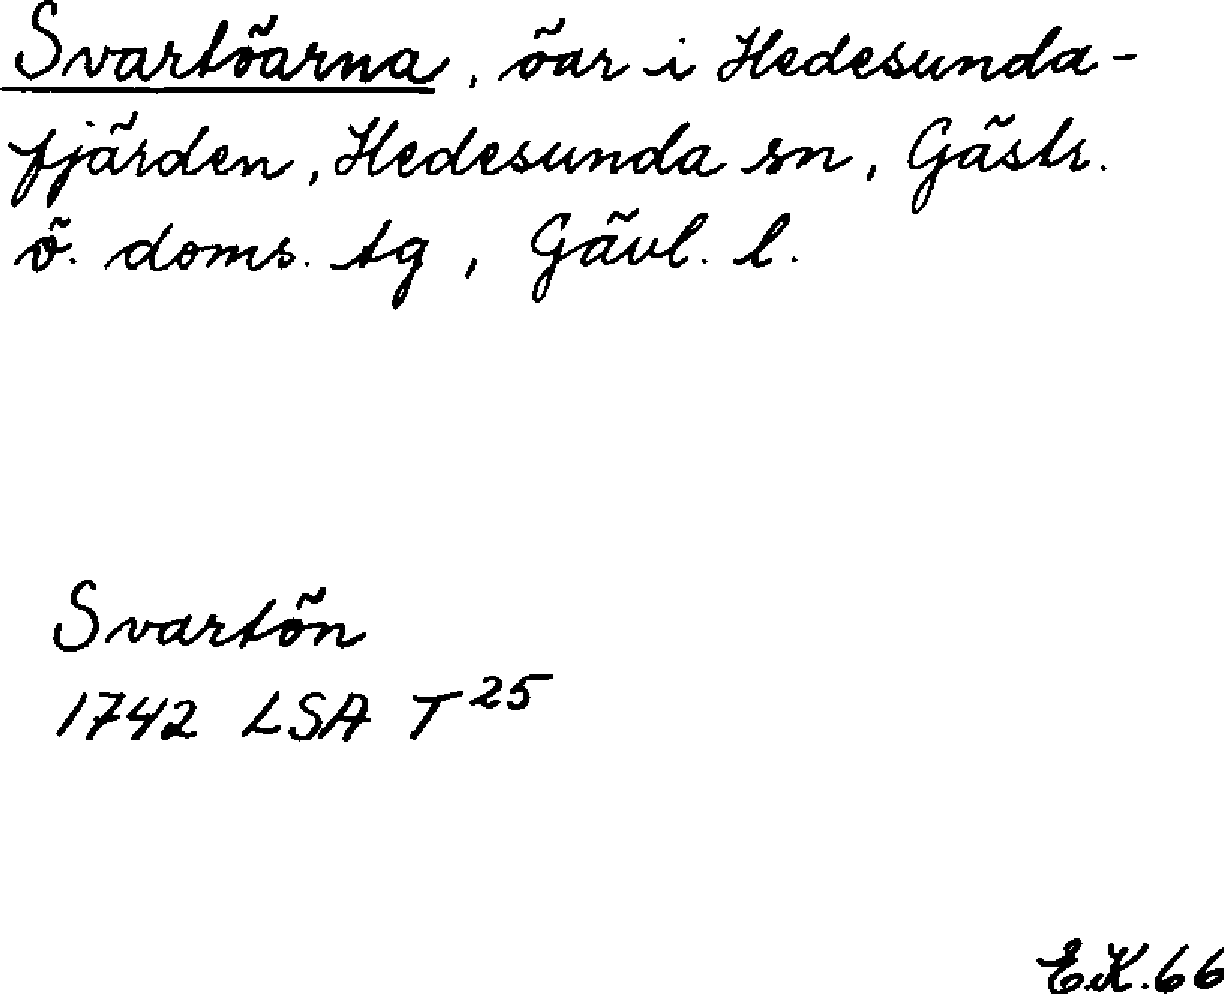 Svartöarna, öar i Hedesunda-
fjärden, Hedesunda sn, Gästr.
ö. doms. tg, Gävl. l.
Svartön
1742 LSA T25
E.K.66